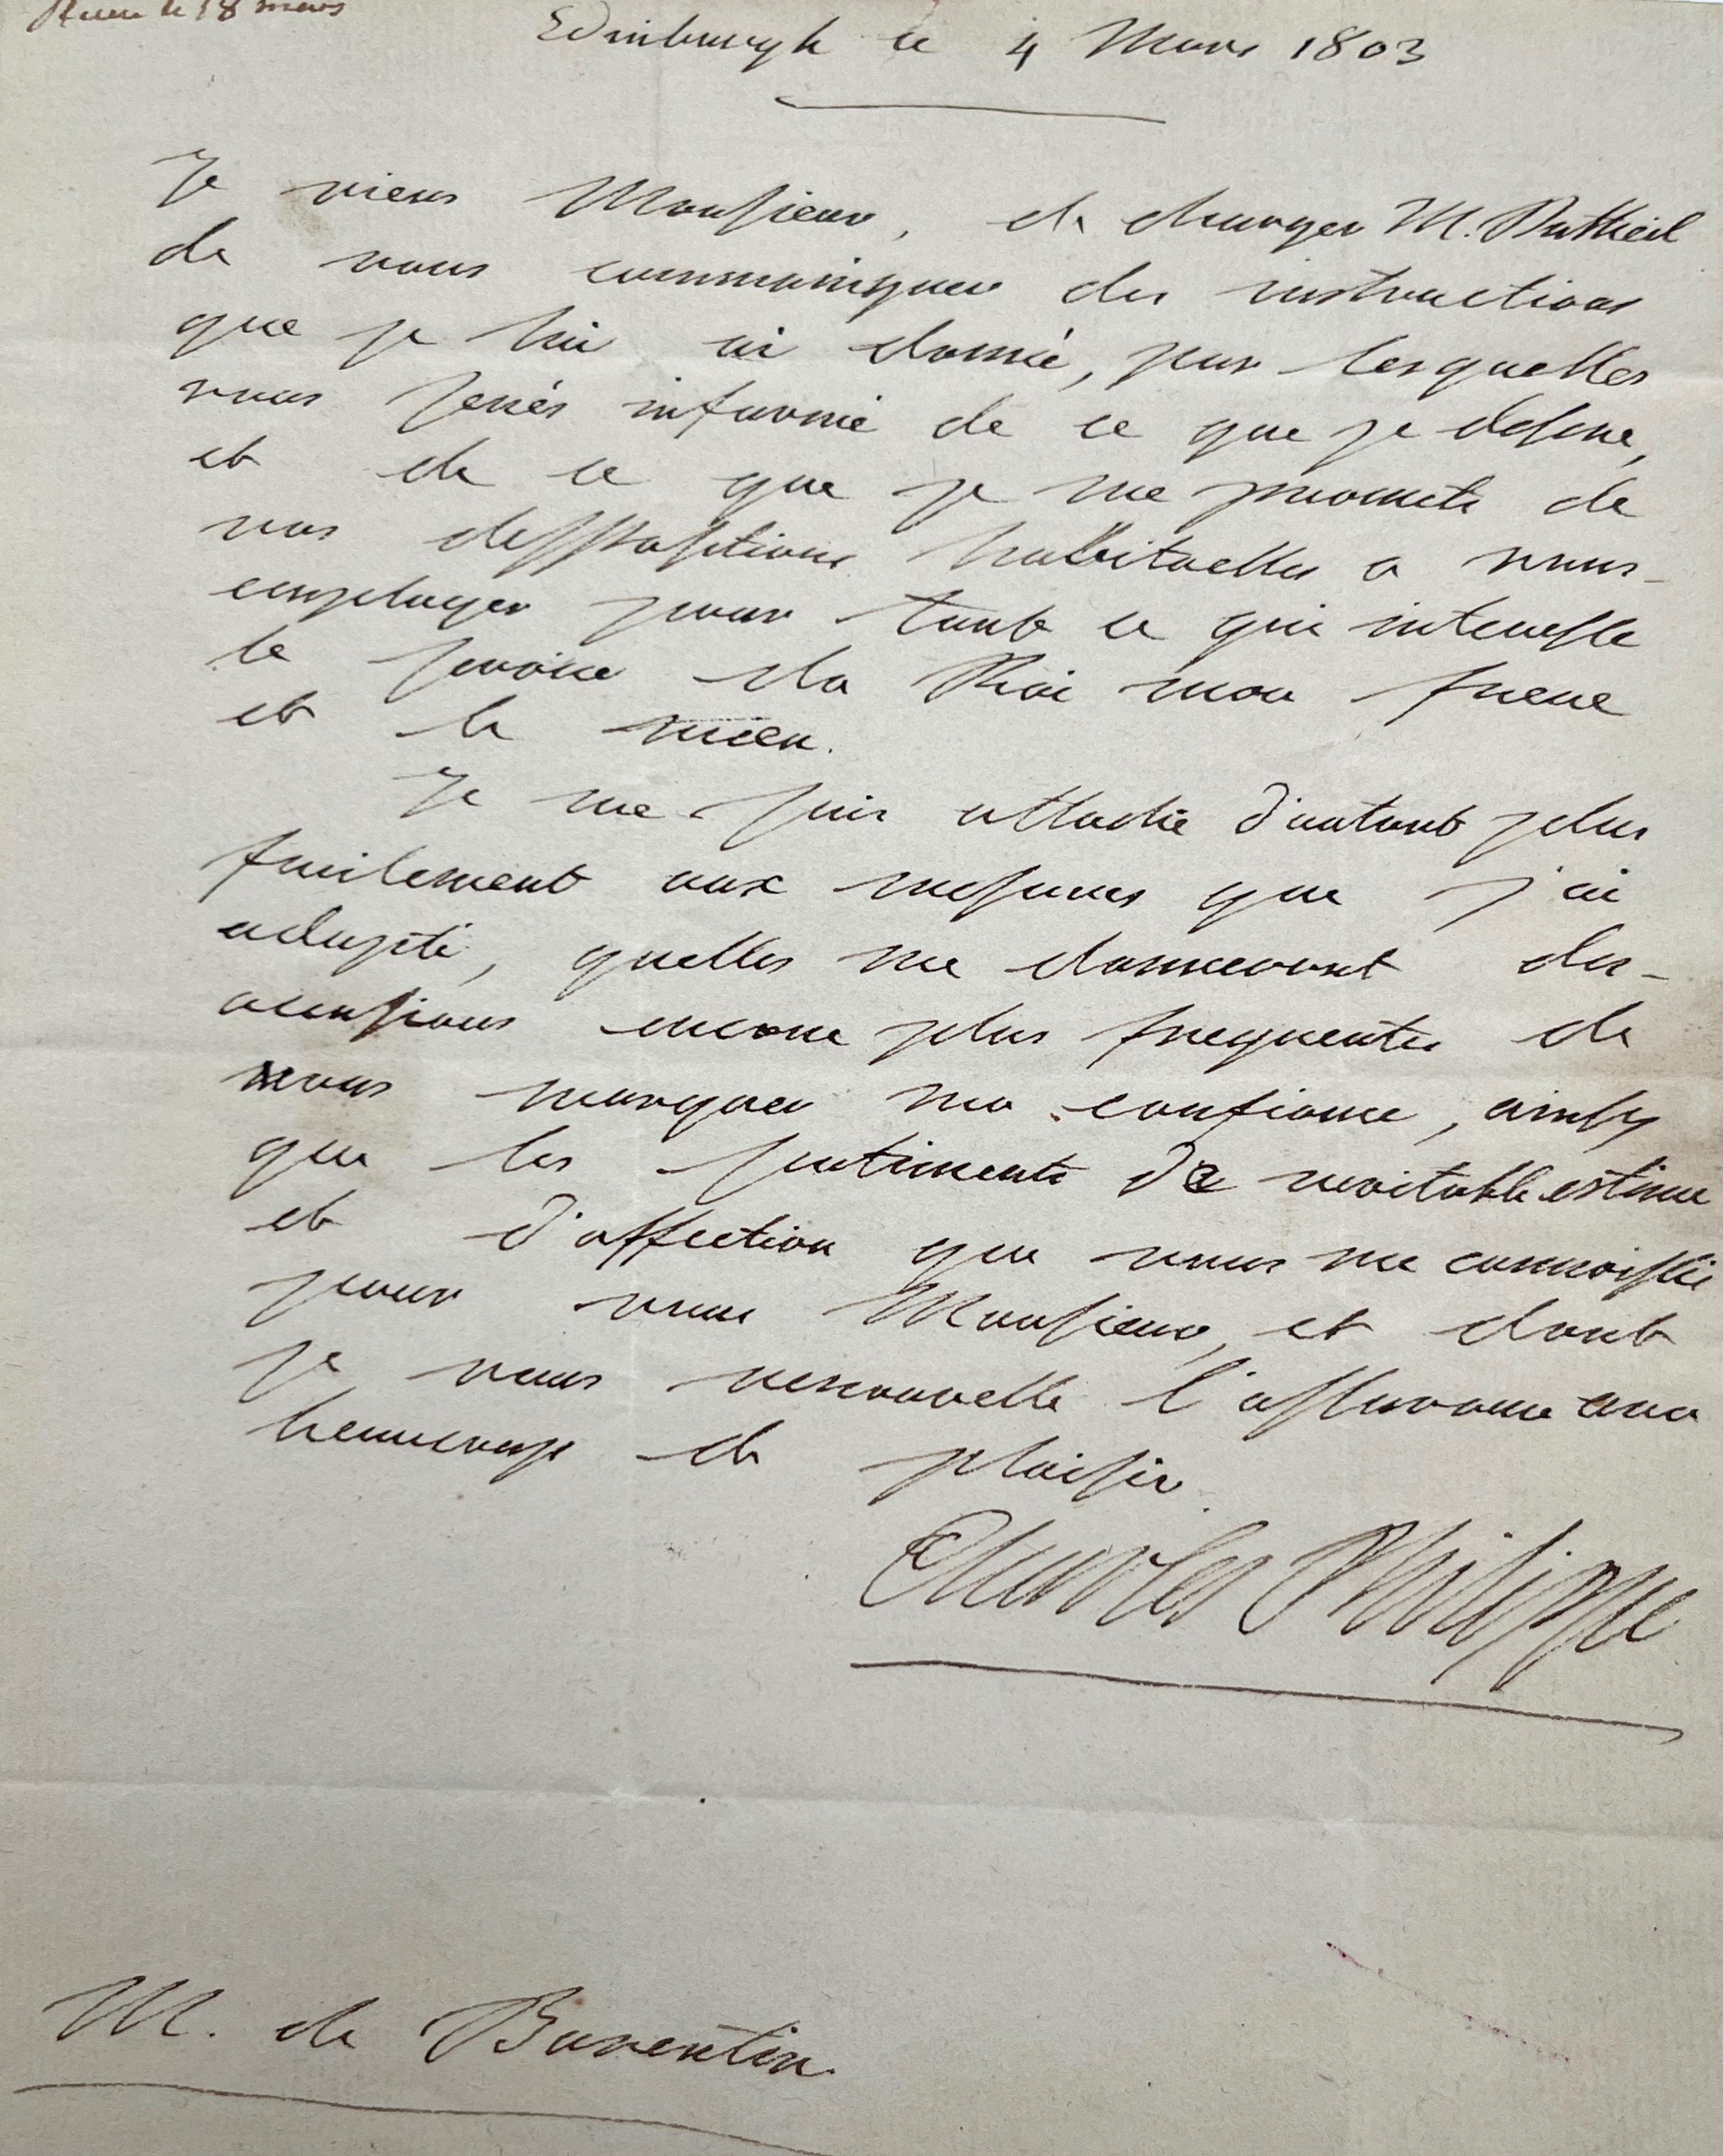 Recue le 18 mars
Edinburgh le 4 Mars 1803
Je viens Monsieur, de charger M. Dutheil
de vous communiquer des instructions
que je lui ai donné, par lesquelles
vous serés informé de ce que je desire,
et de ce que je me promets de
vos dispositions habituelles a vous
employer pour tout ce qui interesse
le service du Roi mon frere
et le mien.
Je me suis attaché d'autant plus
facilement aux mesures que j'ai
adopté, quelles me donneront des
occasions encore plus frequentes de
vous marquer ma confiance, ainsy
que les sentiments de veritable estime
et d'affection que vous me connoissés
pour vous Monsieur, et dont
je vous renouvelle l'assurance avec
beaucoup de plaisir.
Charles Philippe
M. de Barentin